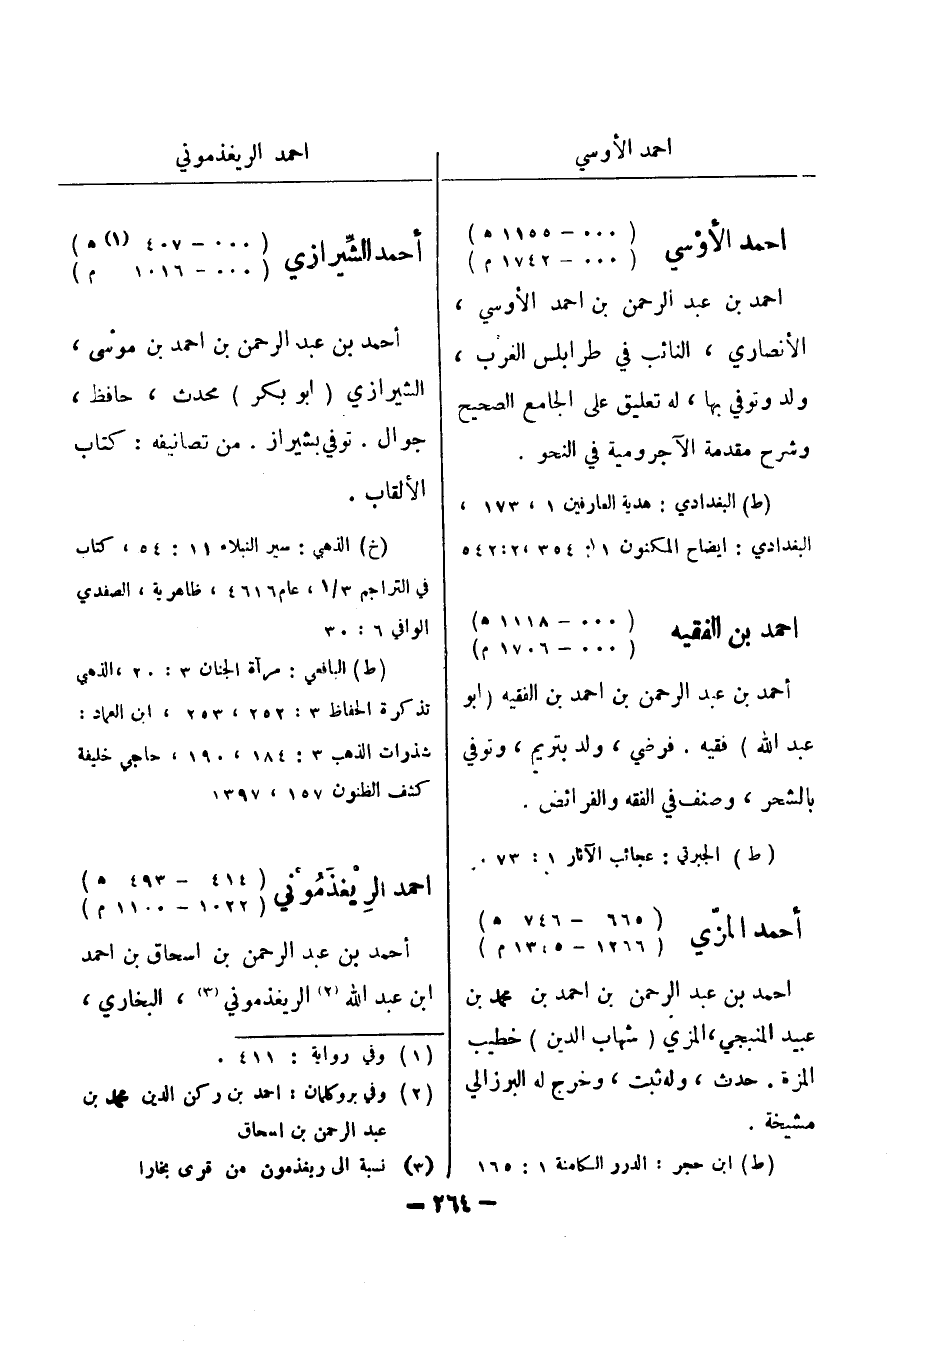 احمد الأوسي
احمد الأوْسي
( ٠٠٠ – ١١٥٥ ه )
( ٠٠٠ – ١٧٤٢ م )
احمد بن عبد الرحمن بن احمد الأوسي ،
الأنصاري ، النائب في طرابلس الغرب ،
ولد وتوفي بها ، له تعليق على الجامع الصحيح
وشرح مقدمة الآجرومية في النحو .
(ط) البغدادي : هدية العارفين ١ ، ١٧٣ ،
البغدادي : ايضاح المكنون ١ : ٣٥٤ ، ٢ : ٥٤٢
احمد بن الفقيه
( ٠٠٠ – ١١١٨ ه )
( ٠٠٠ – ١٧٠٦ م )
أحمد بن عبد الرحمن بن احمد بن الفقيه ( ابو
عبد الله ) فقيه . فرضي ، ولد بتريم ، وتوفي
بالشحر ، وصنف في الفقه والفرائض .
( ط ) الجبرتي : عجائب الآثار ١ : ٧٣ .
أحمد المزّي
( ٦٦٥ – ٧٤٦ ه )
( ١٢٦٦ – ١٣٤٥ م )
احمد بن عبد الرحمن بن احمد بن محمد بن
عبيد المنبجي ، المزي ( شهاب الدين ) خطيب
المزة . حدث ، وله ثبت ، وخرج له البرزالي
مشيخة .
(ط) ابن حجر : الدرر الكامنة ١ : ١٦٥
احمد الريغذموني
أحمد الشّيرازي
( ٠٠٠ – ٤٠٧ (١) ه )
( ٠٠٠ – ١٠١٦ م )
أحمد بن عبد الرحمن بن احمد بن موسى ،
الشيرازي ( ابو بكر ) محدث ، حافظ ،
جوال . توفي بشيراز . من تصانيفه : كتاب
الألقاب .
(خ) الذهبي : سير النبلاء ١١ : ٥٤ ، كتاب
في التراجم ١/٣ ، عام ٤٦١٦ ، ظاهرية ، الصفدي
الوافي ٦ : ٣٠
(ط) اليافعي : مرآة الجنان ٣ : ٢٠ ، الذهبي
تذكرة الحفاظ ٣ : ٢٥٢ ، ٢٥٣ ، ابن العماد :
شذرات الذهب ٣ : ١٨٤ ، ١٩٠ ، حاجي خليفة
كشف الظنون ١٥٧ ، ١٣٩٧
احمد الرِيْغذَمُوني
( ٤١٤ – ٤٩٣ ه )
( ١٠٢٢ – ١١٠٠ م )
أحمد بن عبد الرحمن بن اسحاق بن احمد
ابن عبد الله (٢) الريغذموني (٣) ، البخاري ،
(١) وفي رواية : ٤١١ .
(٢) وفي بروكلمان : احمد بن ركن الدين محمد بن
عبد الرحمن بن اسحاق
(٣) نسبة الى ريغذمون من قرى بخارا
– ٢٦٤ –